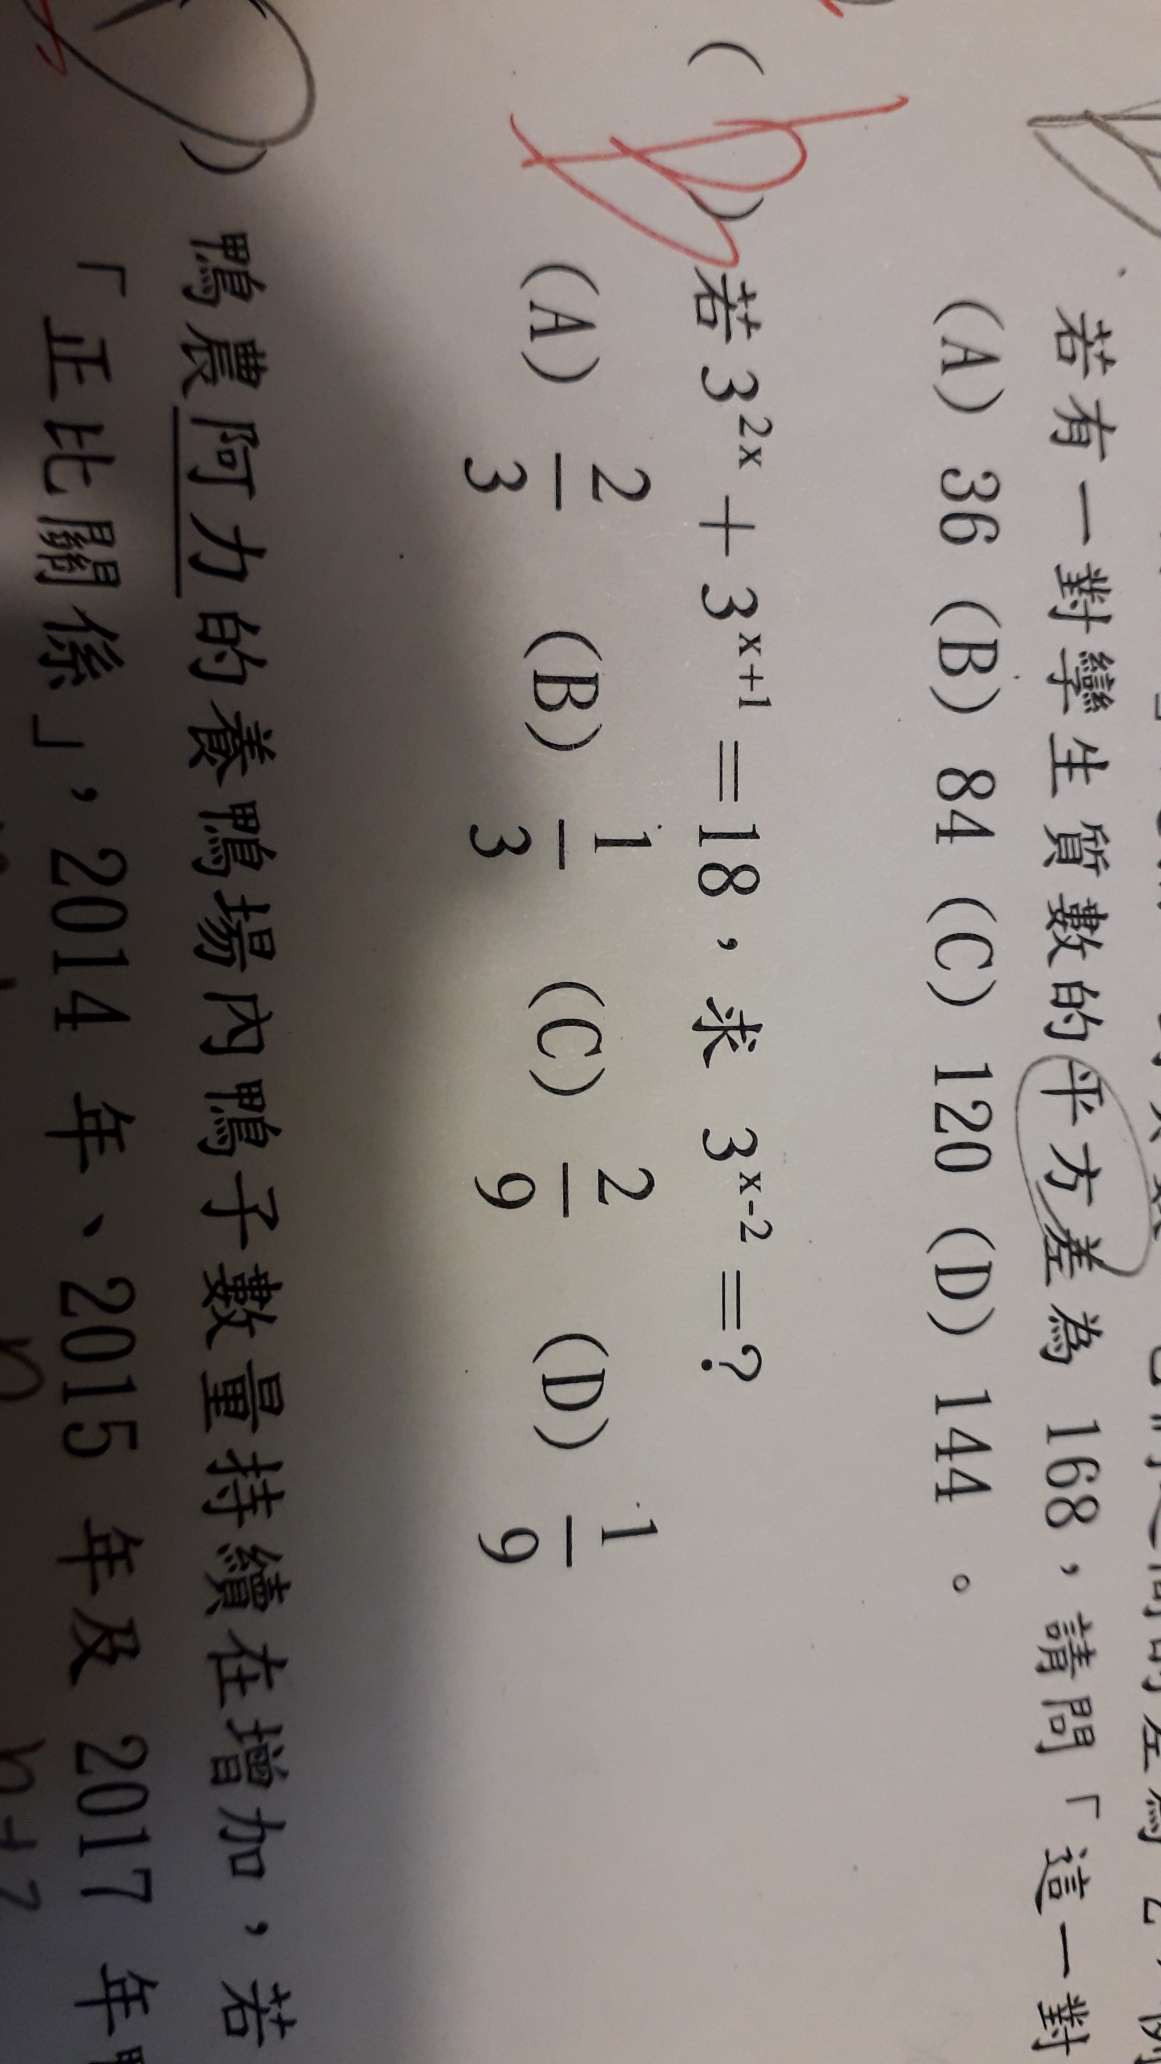 若有一對孿生質數的平方差為 168，請問「這一對
(A) 36 (B) 84 (C) 120 (D) 144 。
( ) 若 3^{2x} + 3^{x+1} = 18，求 3^{x-2} = ?
(A) 2/3 (B) 1/3 (C) 2/9 (D) 1/9
) 鴨農阿力的養鴨場內鴨子數量持續在增加，若
「正比關係」，2014 年、2015 年及 2017 年